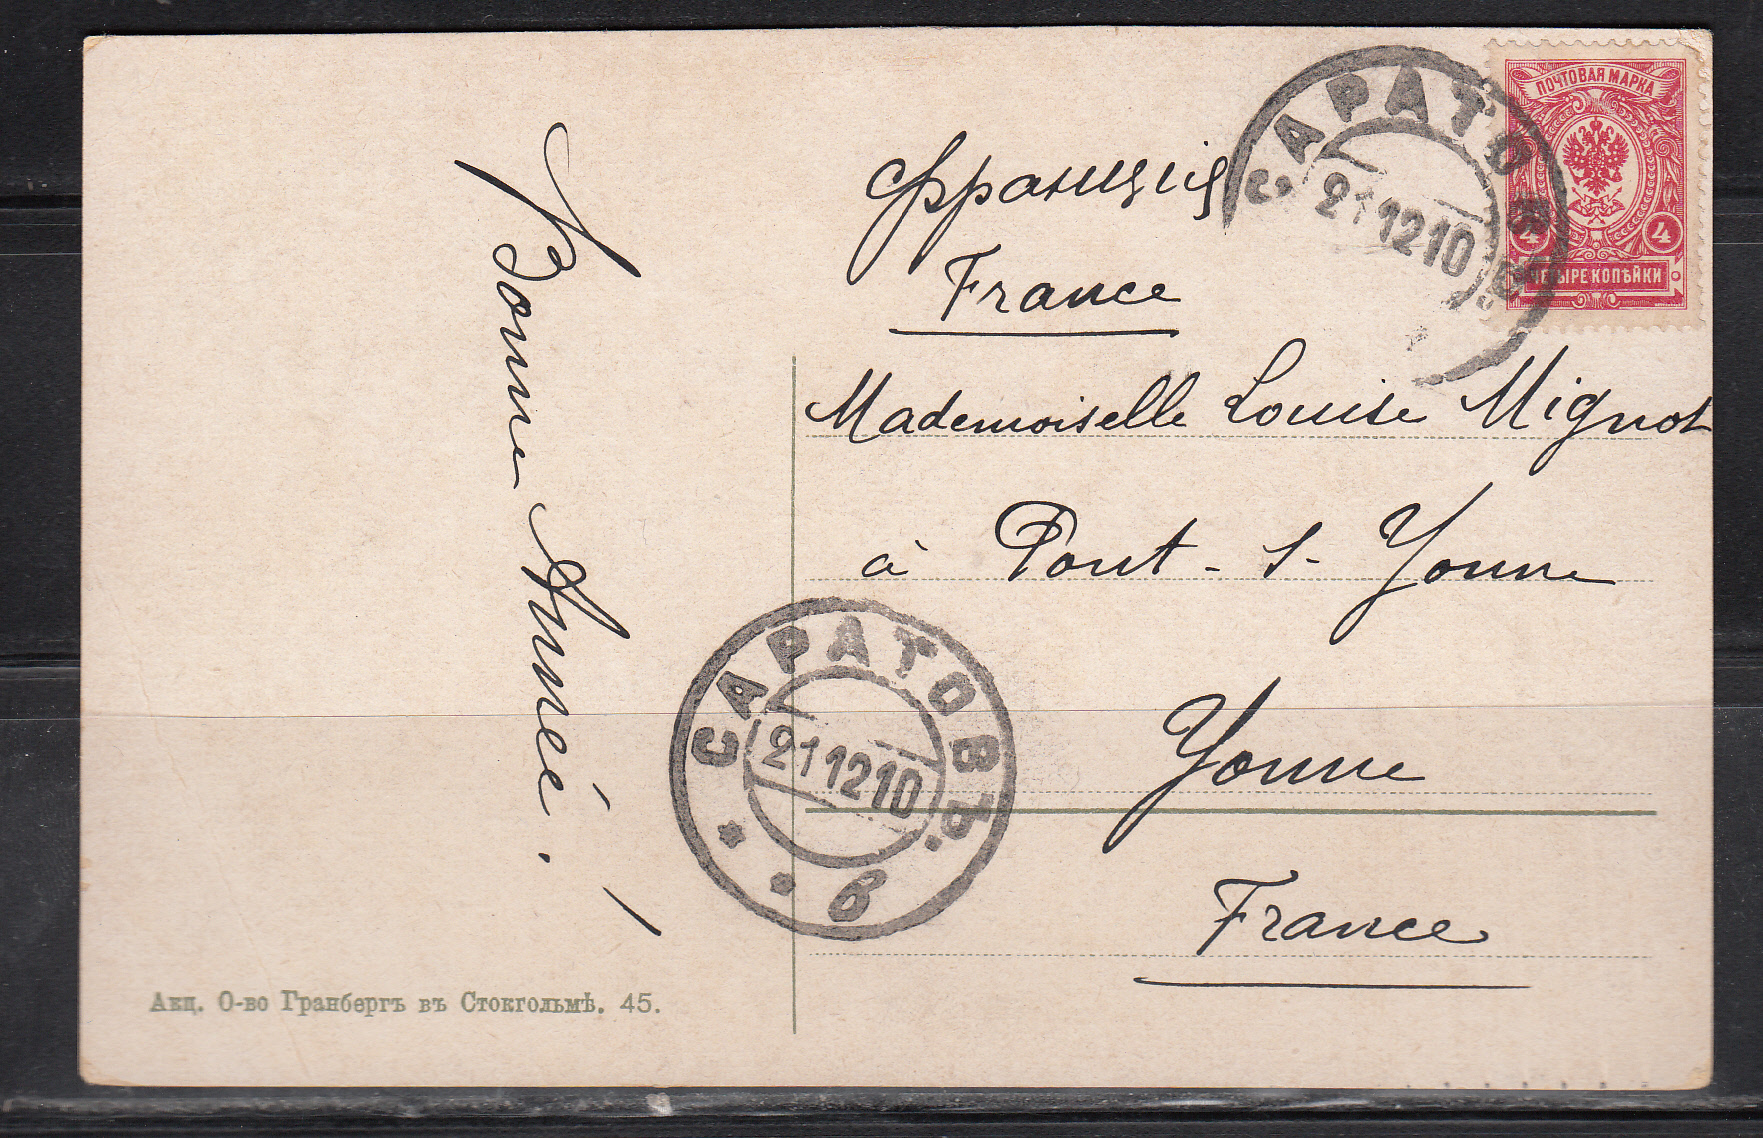 Bonne Année!
Франція
France
Mademoiselle Louise Mignot
à Pont-s-Yonne
Yonne
France
САРАТОВЪ
21 12 10
ПОЧТОВАЯ МАРКА
4 4
ЧЕТЫРЕ КОПѢЙКИ
САРАТОВЪ.
21 12 10
* * в
Акц. О-во Гранбергъ въ Стокгольмѣ. 45.